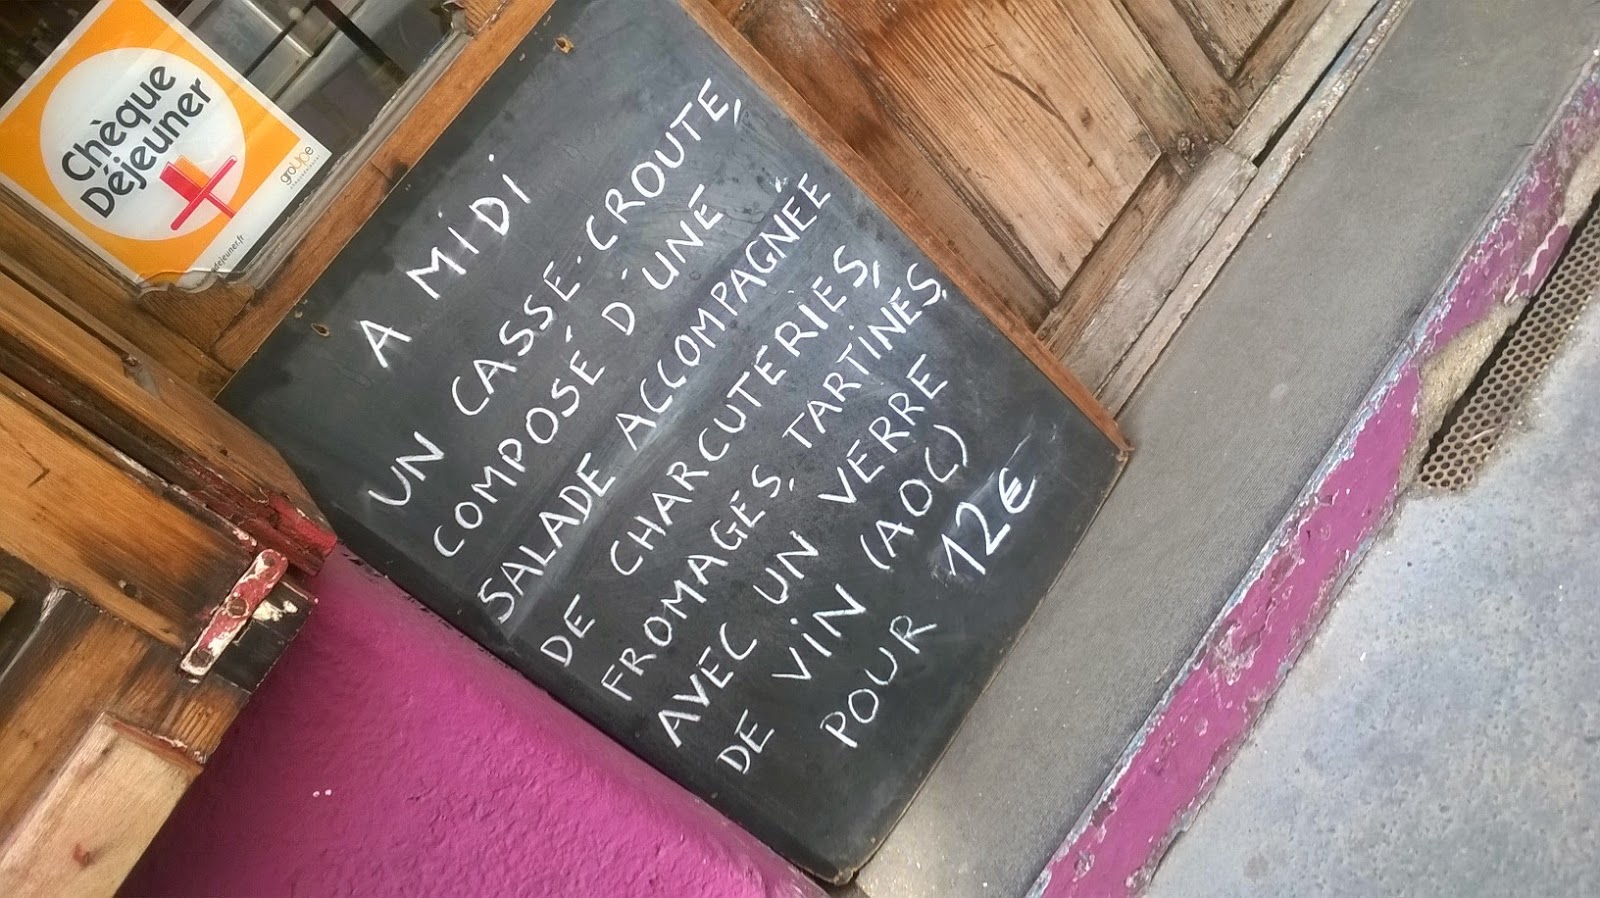 Chèque
Déjeuner
groupe
dejeuner.fr
A MiDi
UN CASSE-CROUTE,
COMPOSÉ D'UNE
SALADE ACCOMPAGNÉE
DE CHARCUTERIES,
FROMAGES, TARTINES.
AVEC UN VERRE
DE ViN (AOC)
POUR 12€